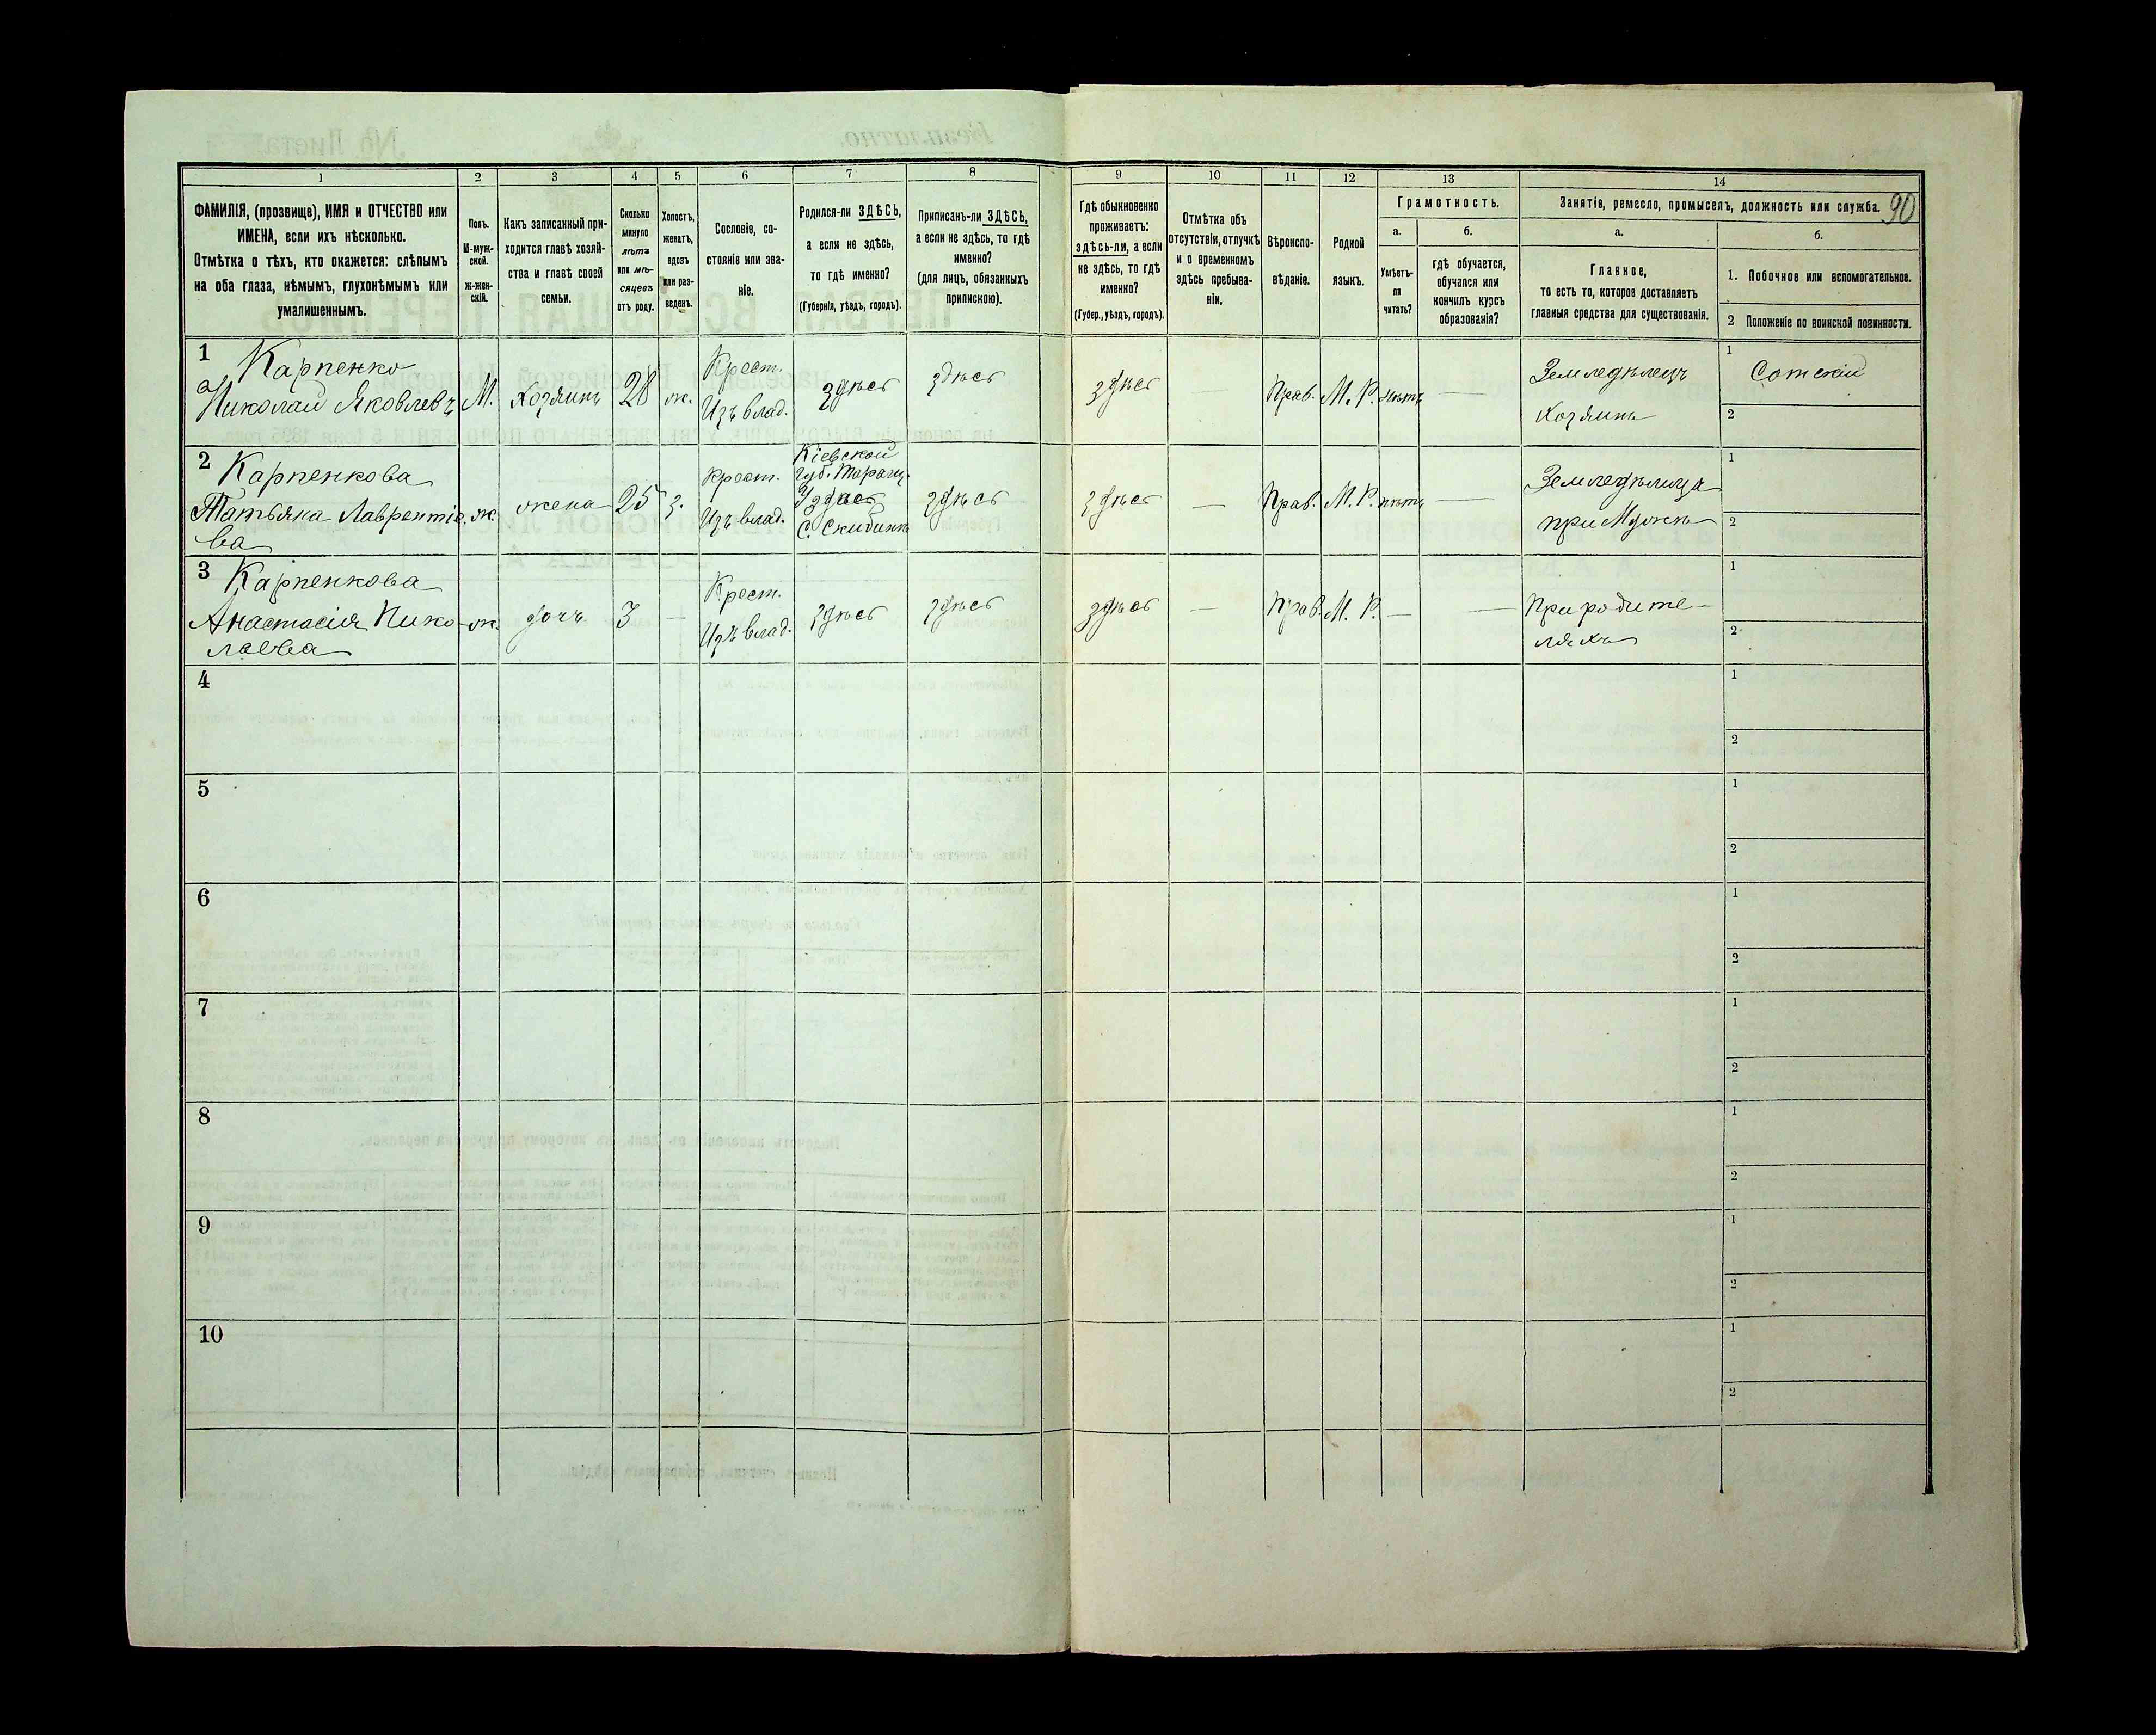 1 2 3 4 5 6 7 8 9 10 11 12 13 14
90
ФАМИЛІЯ, (прозвище), ИМЯ и ОТЧЕСТВО или
ИМЕНА, если ихъ нѣсколько.
Отмѣтка о тѣхъ, кто окажется: слѣпымъ
на оба глаза, нѣмымъ, глухонѣмымъ или
умалишеннымъ.
Полъ.
М-муж-
ской.
ж-жен-
скій.
Какъ записанный при-
ходится главѣ хозяй-
ства и главѣ своей
семьи.
Сколько
минуло
лѣтъ
или мѣ-
сяцевъ
отъ роду.
Холостъ,
женатъ,
вдовъ
или раз-
веденъ.
Сословіе, со-
стояніе или зва-
ніе.
Родился-ли ЗДѢСЬ,
а если не здѣсь,
то гдѣ именно?
(Губернія, уѣздъ, городъ).
Приписанъ-ли ЗДѢСЬ,
а если не здѣсь, то гдѣ
именно?
(для лицъ, обязанныхъ
припискою).
Гдѣ обыкновенно
проживаетъ:
здѣсь-ли, а если
не здѣсь, то гдѣ
именно?
(Губер., уѣздъ, городъ).
Отмѣтка объ
отсутствіи, отлучкѣ
и о временномъ
здѣсь пребыва-
ніи.
Вѣроиспо-
вѣданіе.
Родной
языкъ.
Грамотность.
а.
Умѣетъ-
ли
читать?
б.
гдѣ обучается,
обучался или
кончилъ курсъ
образованія?
Занятія, ремесло, промыселъ, должность или служба.
а.
Главное,
то есть то, которое доставляетъ
главныя средства для существованія.
б.
1. Побочное или вспомогательное.
2 Положеніе по воинской повинности.
1 Карпенко
Николай Яковлевъ
М.
Хозяинъ
28
ж.
Крест.
Изъ влад.
здѣсь
здѣсь
здѣсь
—
Прав.
М. Р.
нѣтъ
—
Земледѣлецъ
Хозяинъ
1 Сотскій
2
2 Карпенкова
Татьяна Лаврентіе
ва
ж.
жена
25
з.
Крест.
Изъ влад.
Кіевской
губ. Таращ.
С. Скибинъ
здѣсь
здѣсь
—
Прав.
М. Р.
нѣтъ
—
Земледѣлица
при Мужѣ
1
2
3 Карпенкова
Анастасія Нико-
лаева
ж.
дочь
3
—
Крест.
Изъ влад.
здѣсь
здѣсь
здѣсь
—
Прав.
М. Р.
—
—
При родите-
ляхъ
1
2
4
1
2
5
1
2
6
1
2
7
1
2
8
1
2
9
1
2
10
1
2